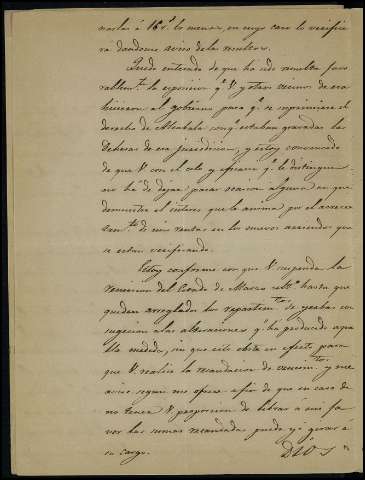 narlas á 16 rs. lo menos, en cuyo caso lo verifica
rá dandome aviso de la resultas.
Quedo enterado de que ha sido resuelta favo
rablemte. la exposicion qe. V y otros vecinos de esa
hicieron al gobierno para qe. se suprimiera el
derecho de Alcabala conqe. estaban gravadas las
Dehesas de esa jurisdiccion, y estoy convencido
de que V con el celo y eficacia qe. le distingue
no ha de dejar pasar ocasion alguna en que
demuestre el interes que le anima por el acrecen
tamto. de mis rentas en los nuevos arriendos que
se estan verificando.
Estoy conforme con que V suspenda la
remision del Estado de Marzo ultº. hasta que
queden arreglados los repartimtos. de yerbas con
sugecion a las alteraciones qe. ha producido aque
lla medida, sin que esto obste en efecto para
que V realice la recaudacion de vencimtos. y me
avise segun me ofrece a fin de que en caso de
no tener V proporcion de librar á mi fa
vor las sumas recaudadas pueda yo girar á
su cargo.
Dios